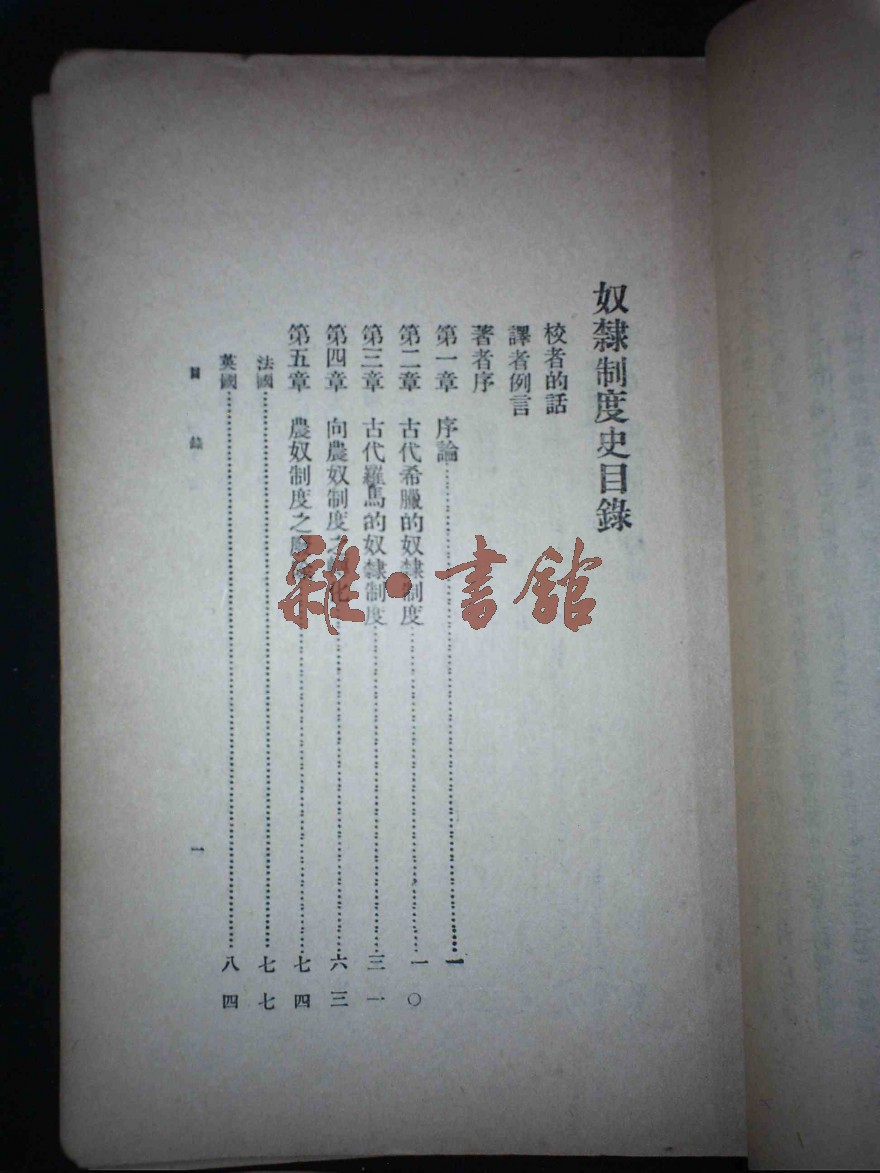 奴隸制度史目錄
校者的話
譯者例言
著者序
第一章 序論……一
第二章 古代希臘的奴隸制度……一〇
第三章 古代羅馬的奴隸制度……三一
第四章 向農奴制度之轉化……六三
第五章 農奴制度之……七四
法國……七七
英國……八四
目錄
一
雜·書館